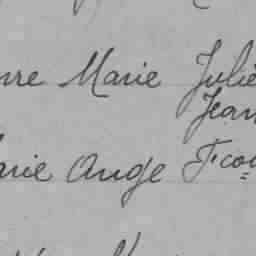 nre Marie Julie
Jean
arie Ange Fco